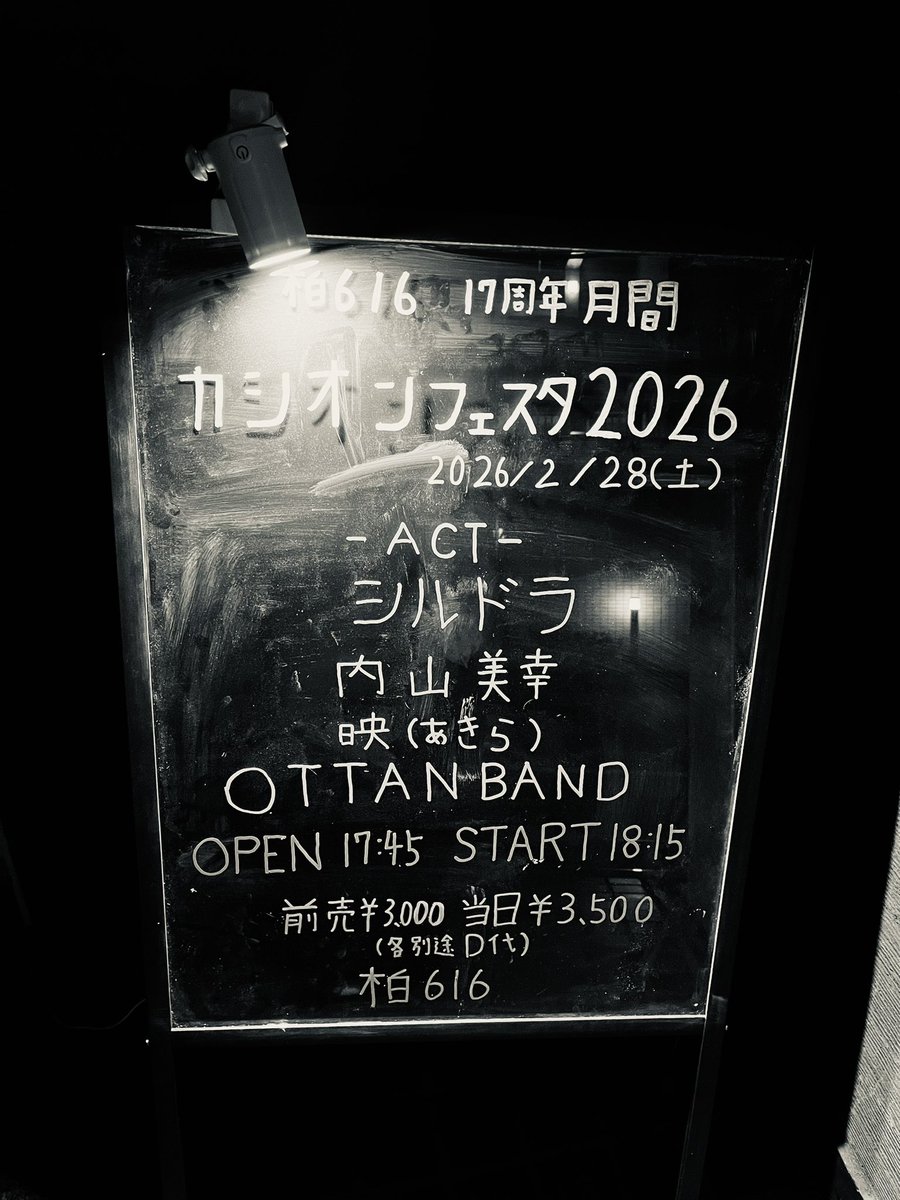 柏616 17周年月間
カシオンフェスタ2026
2026/2/28(土)
-ACT-
シルドラ
内山美幸
映(あきら)
OTTAN BAND
OPEN 17:45 START 18:15
前売¥3.000 当日¥3.500
(各別途D代)
柏616